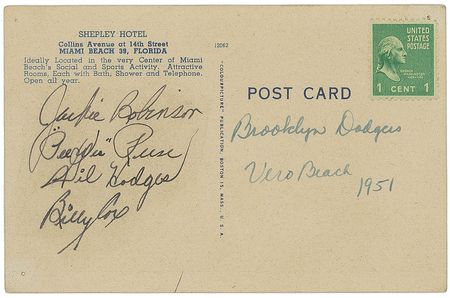 SHEPLEY HOTEL
Collins Avenue at 14th Street
MIAMI BEACH 39, FLORIDA
Ideally Located in the very Center of Miami
Beach's Social and Sports Activity. Attractive
Rooms. Each with Bath, Shower and Telephone.
Open all year.
12062
Jackie Robinson
"PeeWee" Reese
Gil Hodges
Billy Cox
"COLORPICTURE" PUBLICATION, BOSTON 15, MASS., U. S. A.
POST CARD
UNITED
STATES
POSTAGE
1 CENT 1
Brooklyn Dodgers
Vero Beach
1951